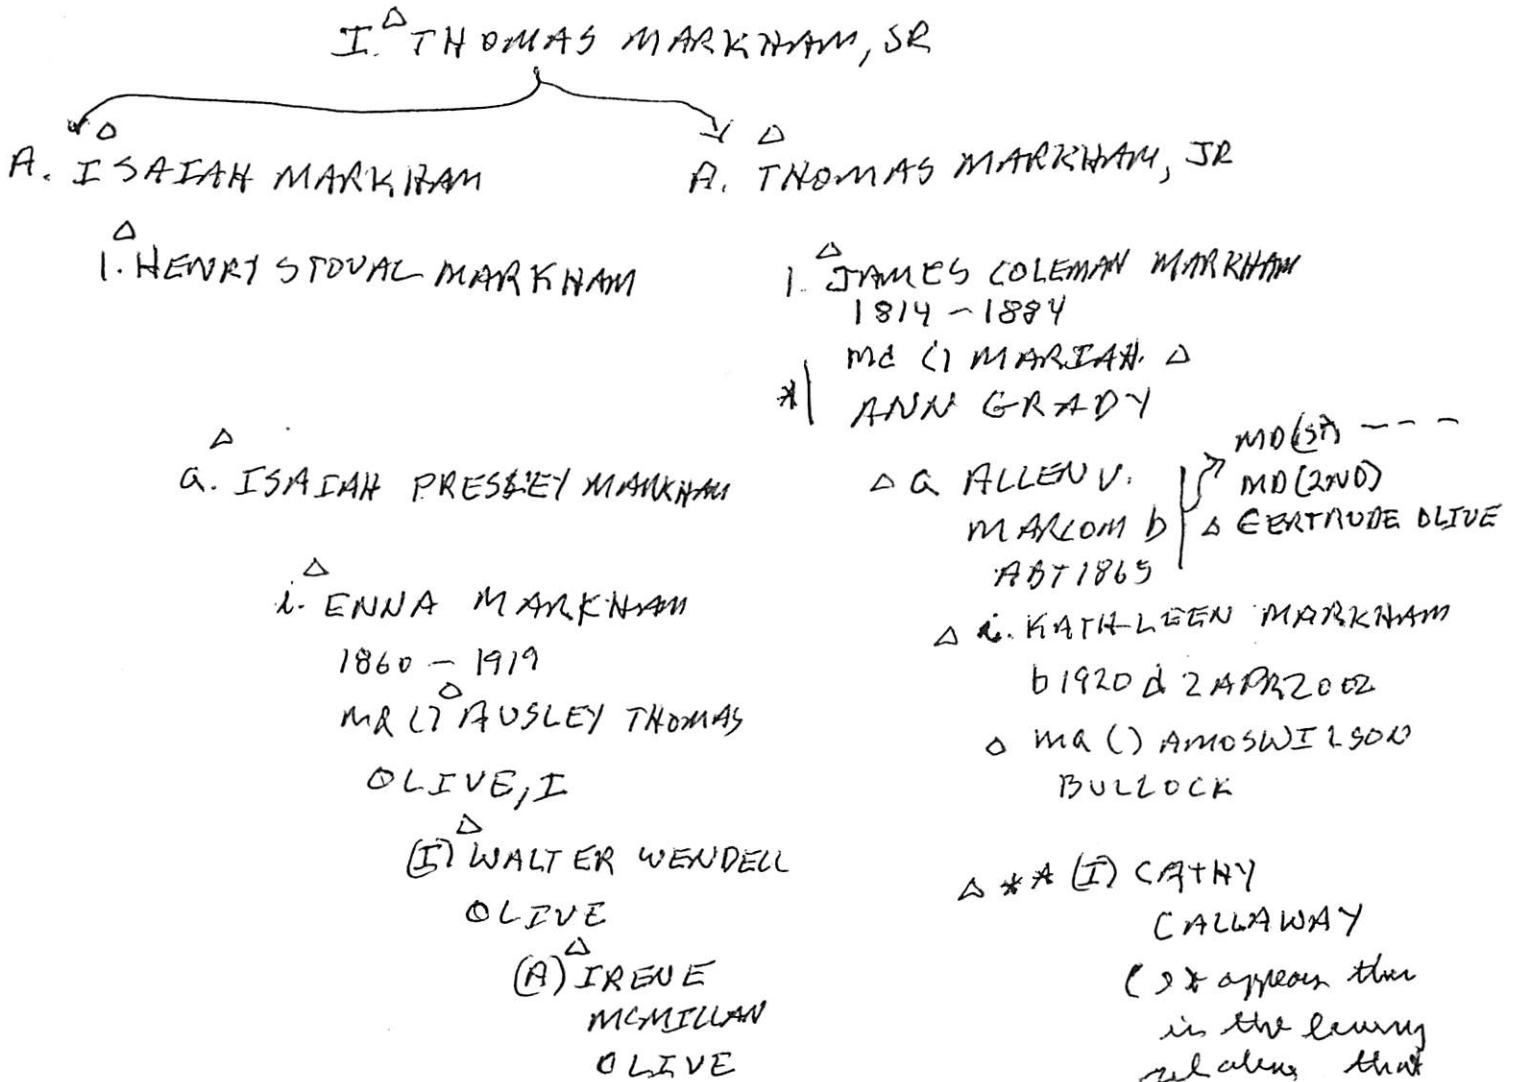 I. THOMAS MARKHAM, SR
A. ISAIAH MARKHAM
1. HENRY STOVAL MARKHAM
a. ISAIAH PRESLEY MARKHAM
i. ENNA MARKHAM
1860 - 1919
md () AUSLEY THOMAS
OLIVE, I
(I) WALTER WENDELL
OLIVE
(A) IRENE
MCMILLAN
OLIVE
A. THOMAS MARKHAM, JR
1. JAMES COLEMAN MARKHAM
1814 - 1884
md () MARIAH
* ANN GRADY
a ALLEN V.
MARCOM b
ABT 1865
MD (1ST) - - -
MD (2ND)
GERTRUDE OLIVE
i. KATHLEEN MARKHAM
b 1920 d 2 APR 2002
md () AMOS WILSON
BULLOCK
** (I) CATHY
CALLAWAY
appears this
is the
that